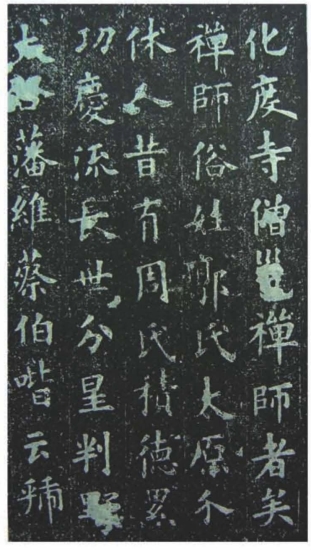 化度寺僧邕禪師者矣
禪師俗姓郭氏太原介
休人昔有周氏積德累
功慶流長世分星判野
大藩維蔡伯喈云號